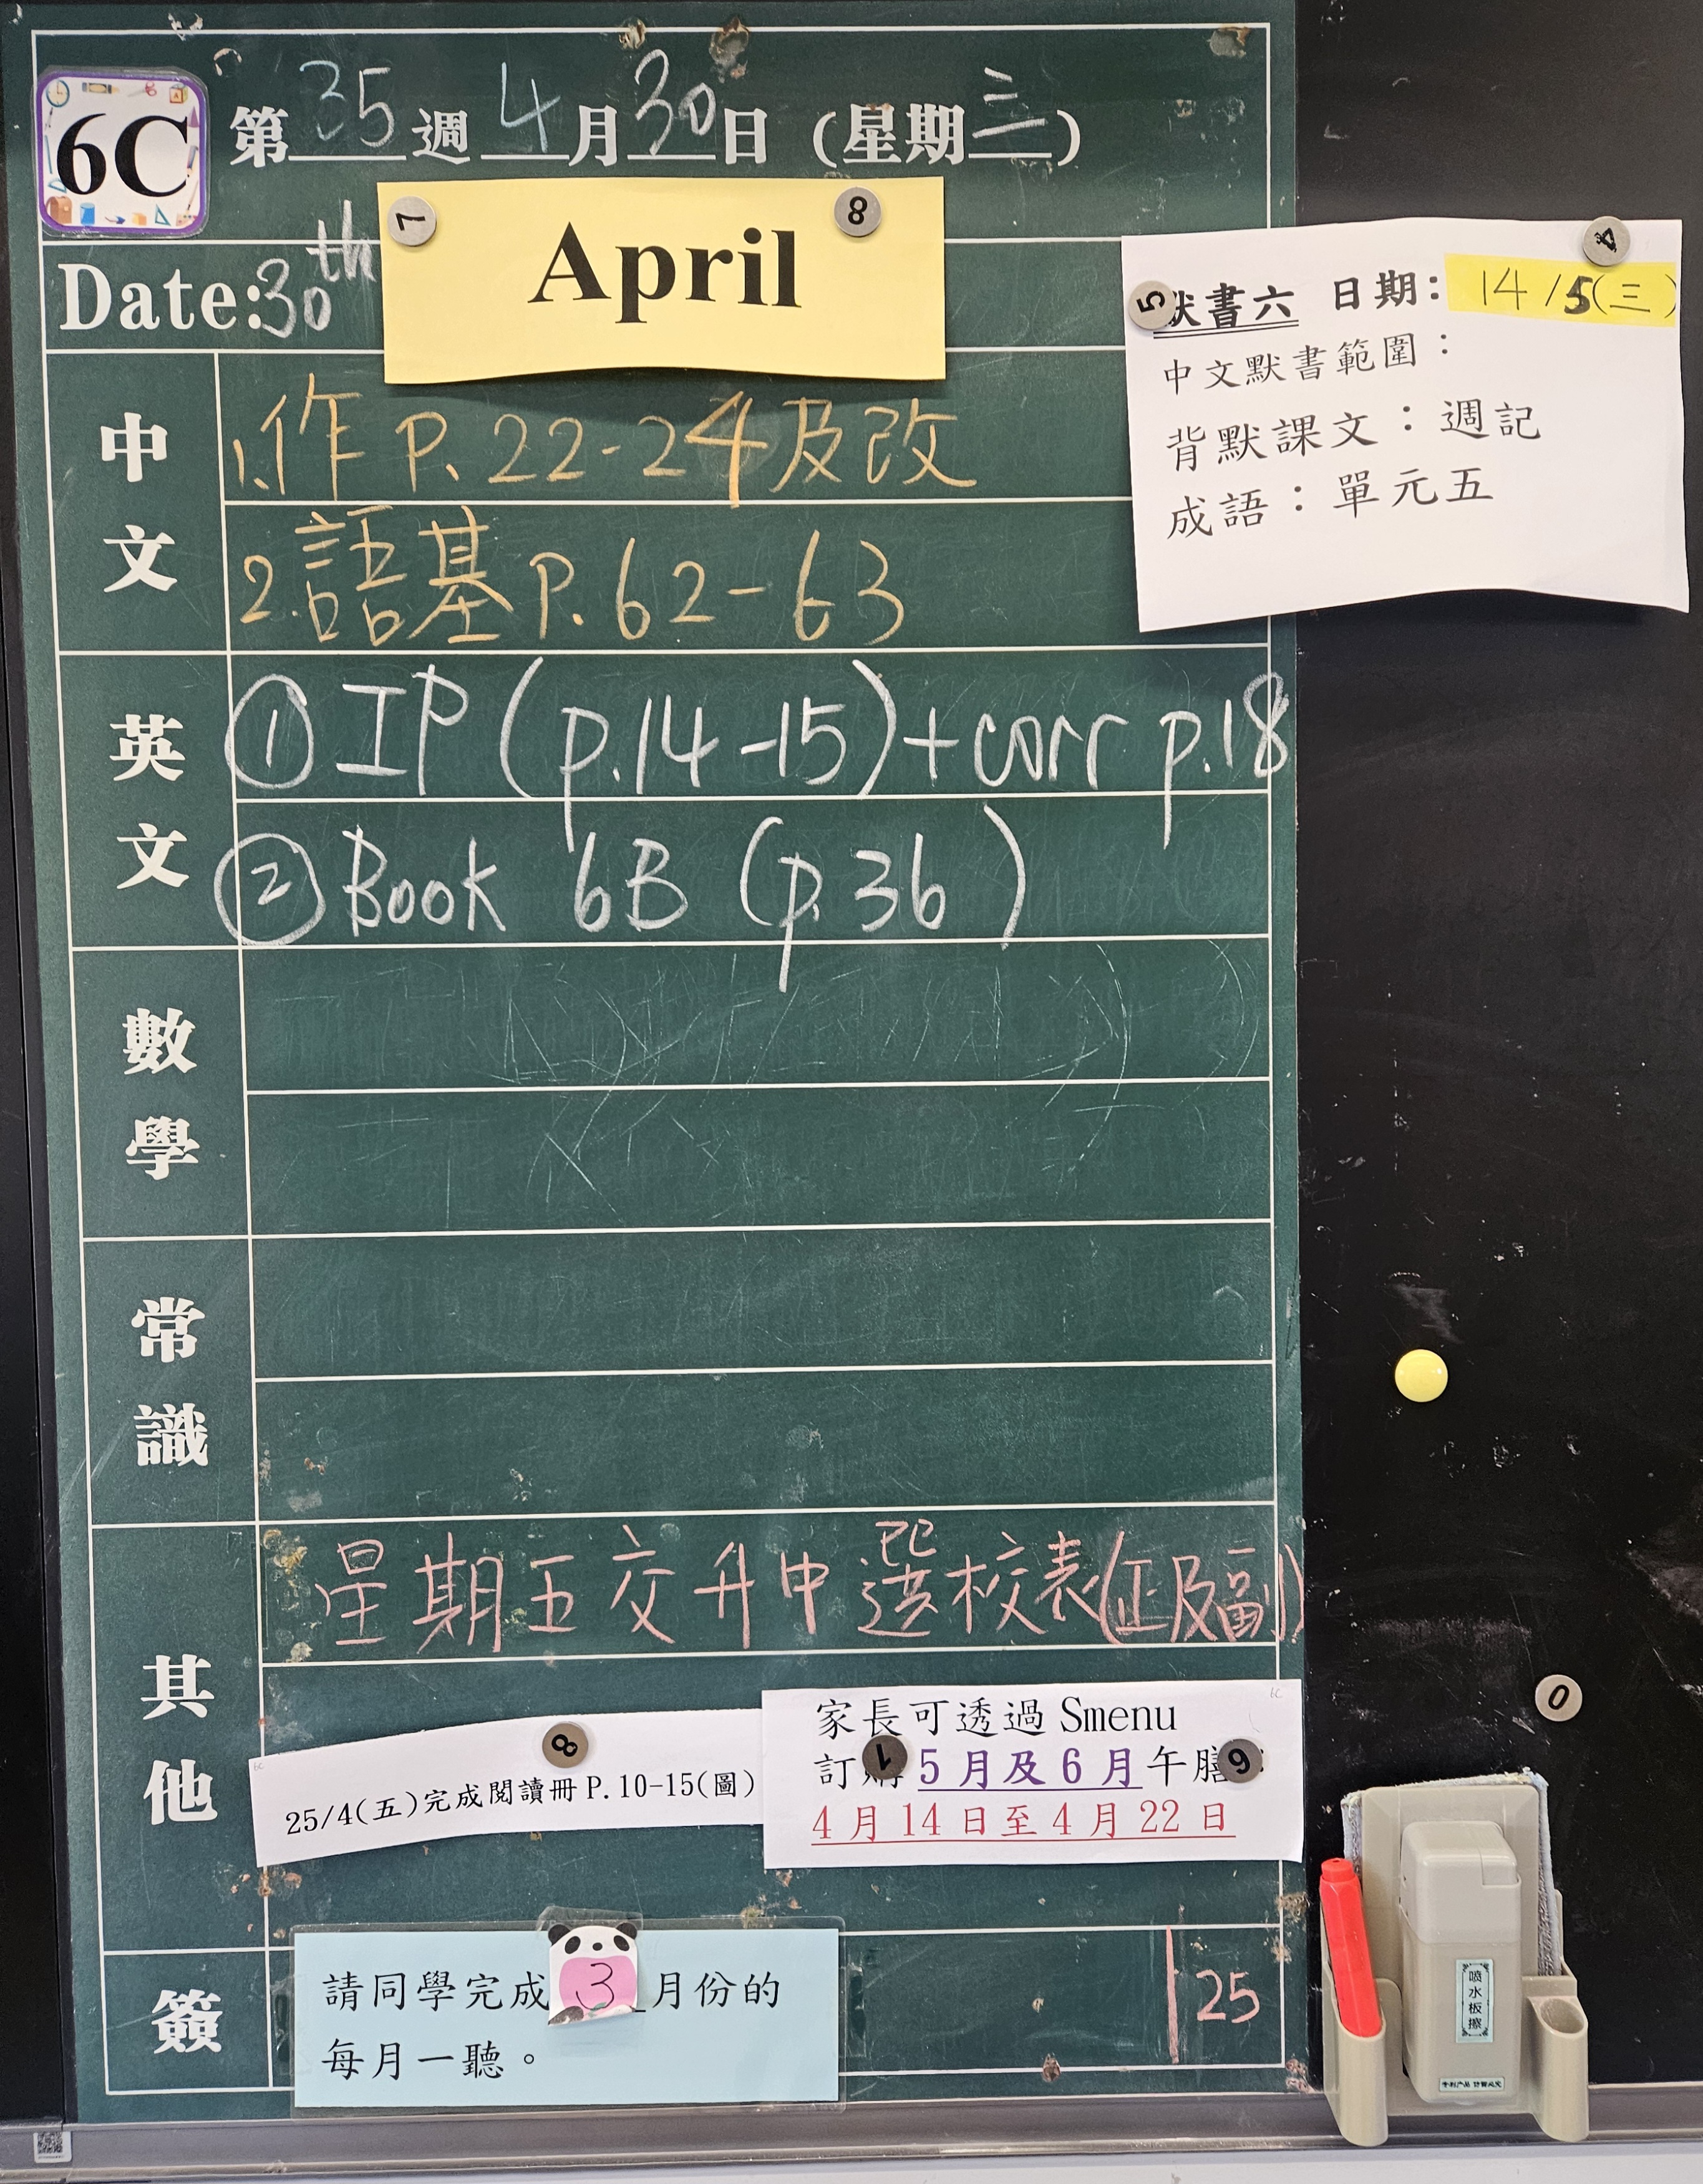 6C
第35週4月30日(星期三)
Date:30th April
中文
1.作 P.22-24及改
2.語基P.62-63
默書六 日期:14/5(三)
中文默書範圍:
背默課文:週記
成語:單元五
英文
① IP (p.14-15)+corr p.18
② Book 6B (p.36)
數學
常識
其他
星期五交升中選校表(正及副)
25/4(五)完成閱讀冊P.10-15(圖)
家長可透過 Smenu
訂 5月及6月午膳
4月14日至4月22日
簽
請同學完成3月份的
每月一聽。
25
7
8
5
4
8
1
6
0
喷水板擦